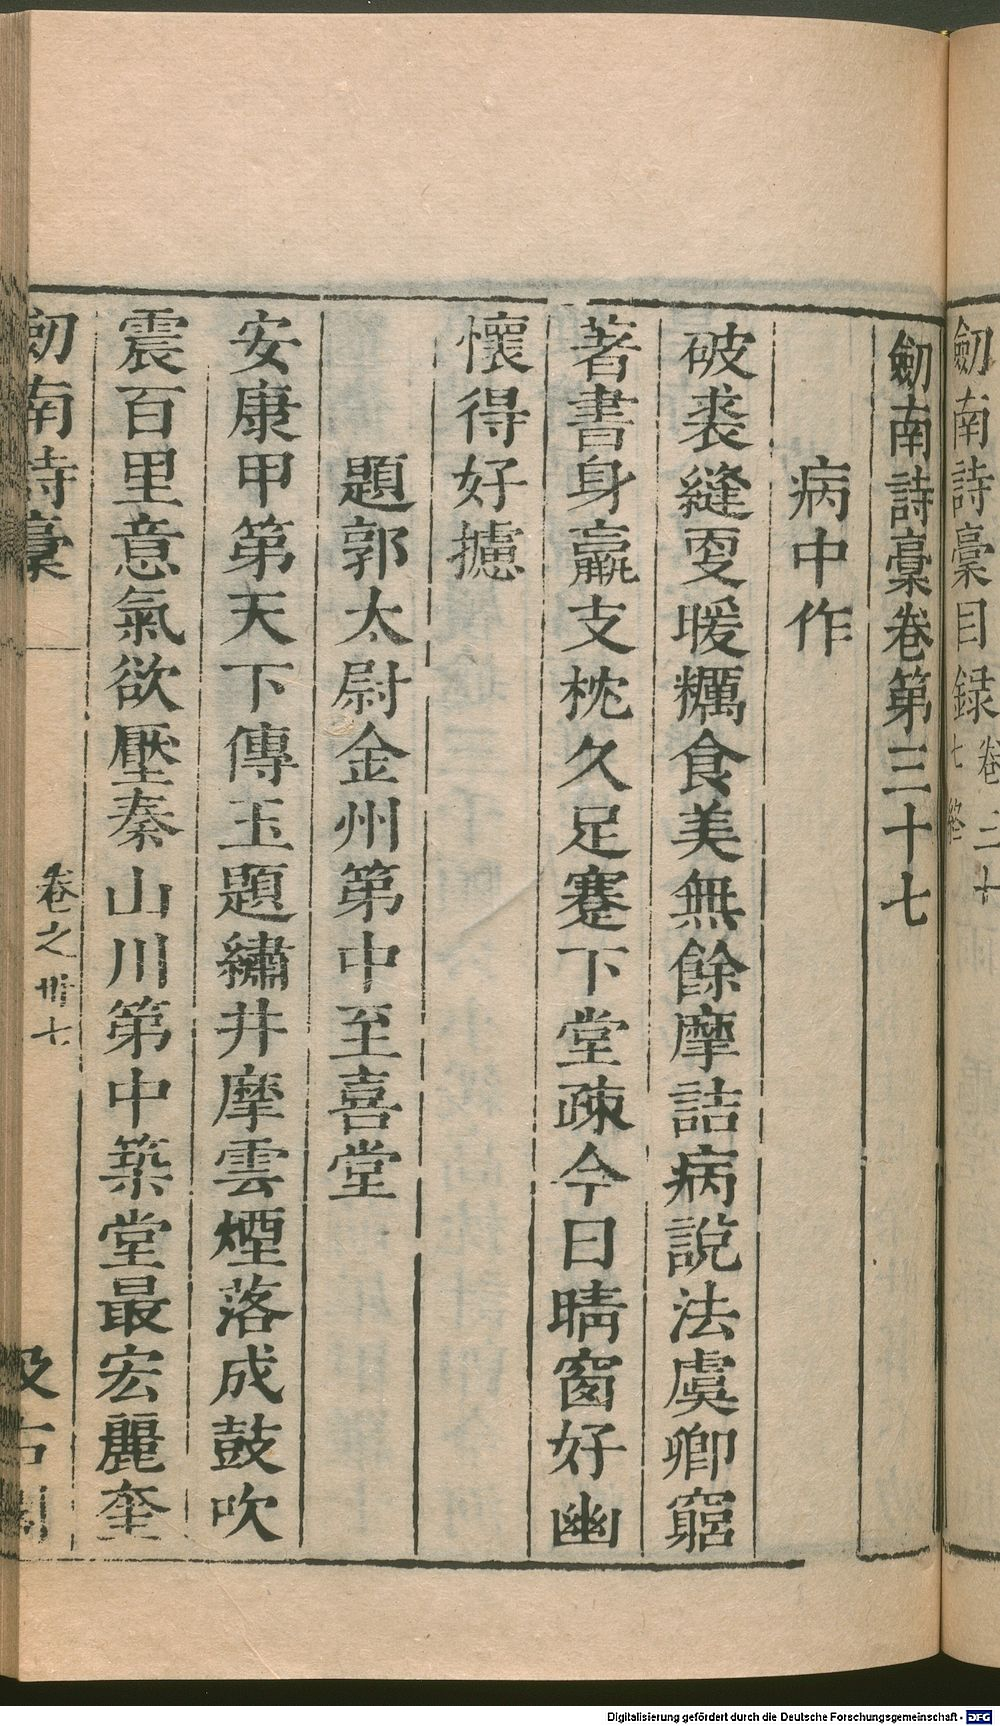 劒南詩稾目録 卷三十
七 終
劒南詩稾卷第三十七
病中作
破裘縫㪅暖糲食美無餘摩詰病說法虞卿窮
著書身羸支枕久足蹇下堂疎今日晴窗好幽
懷得好攄
題郭太尉金州第中至喜堂
安康甲第天下傳玉題繡井摩雲煙落成鼓吹
震百里意氣欲壓秦山川第中築堂最宏麗奎
劒南詩稾 卷之卅七 汲古閣
Digitalisierung gefördert durch die Deutsche Forschungsgemeinschaft - DFG